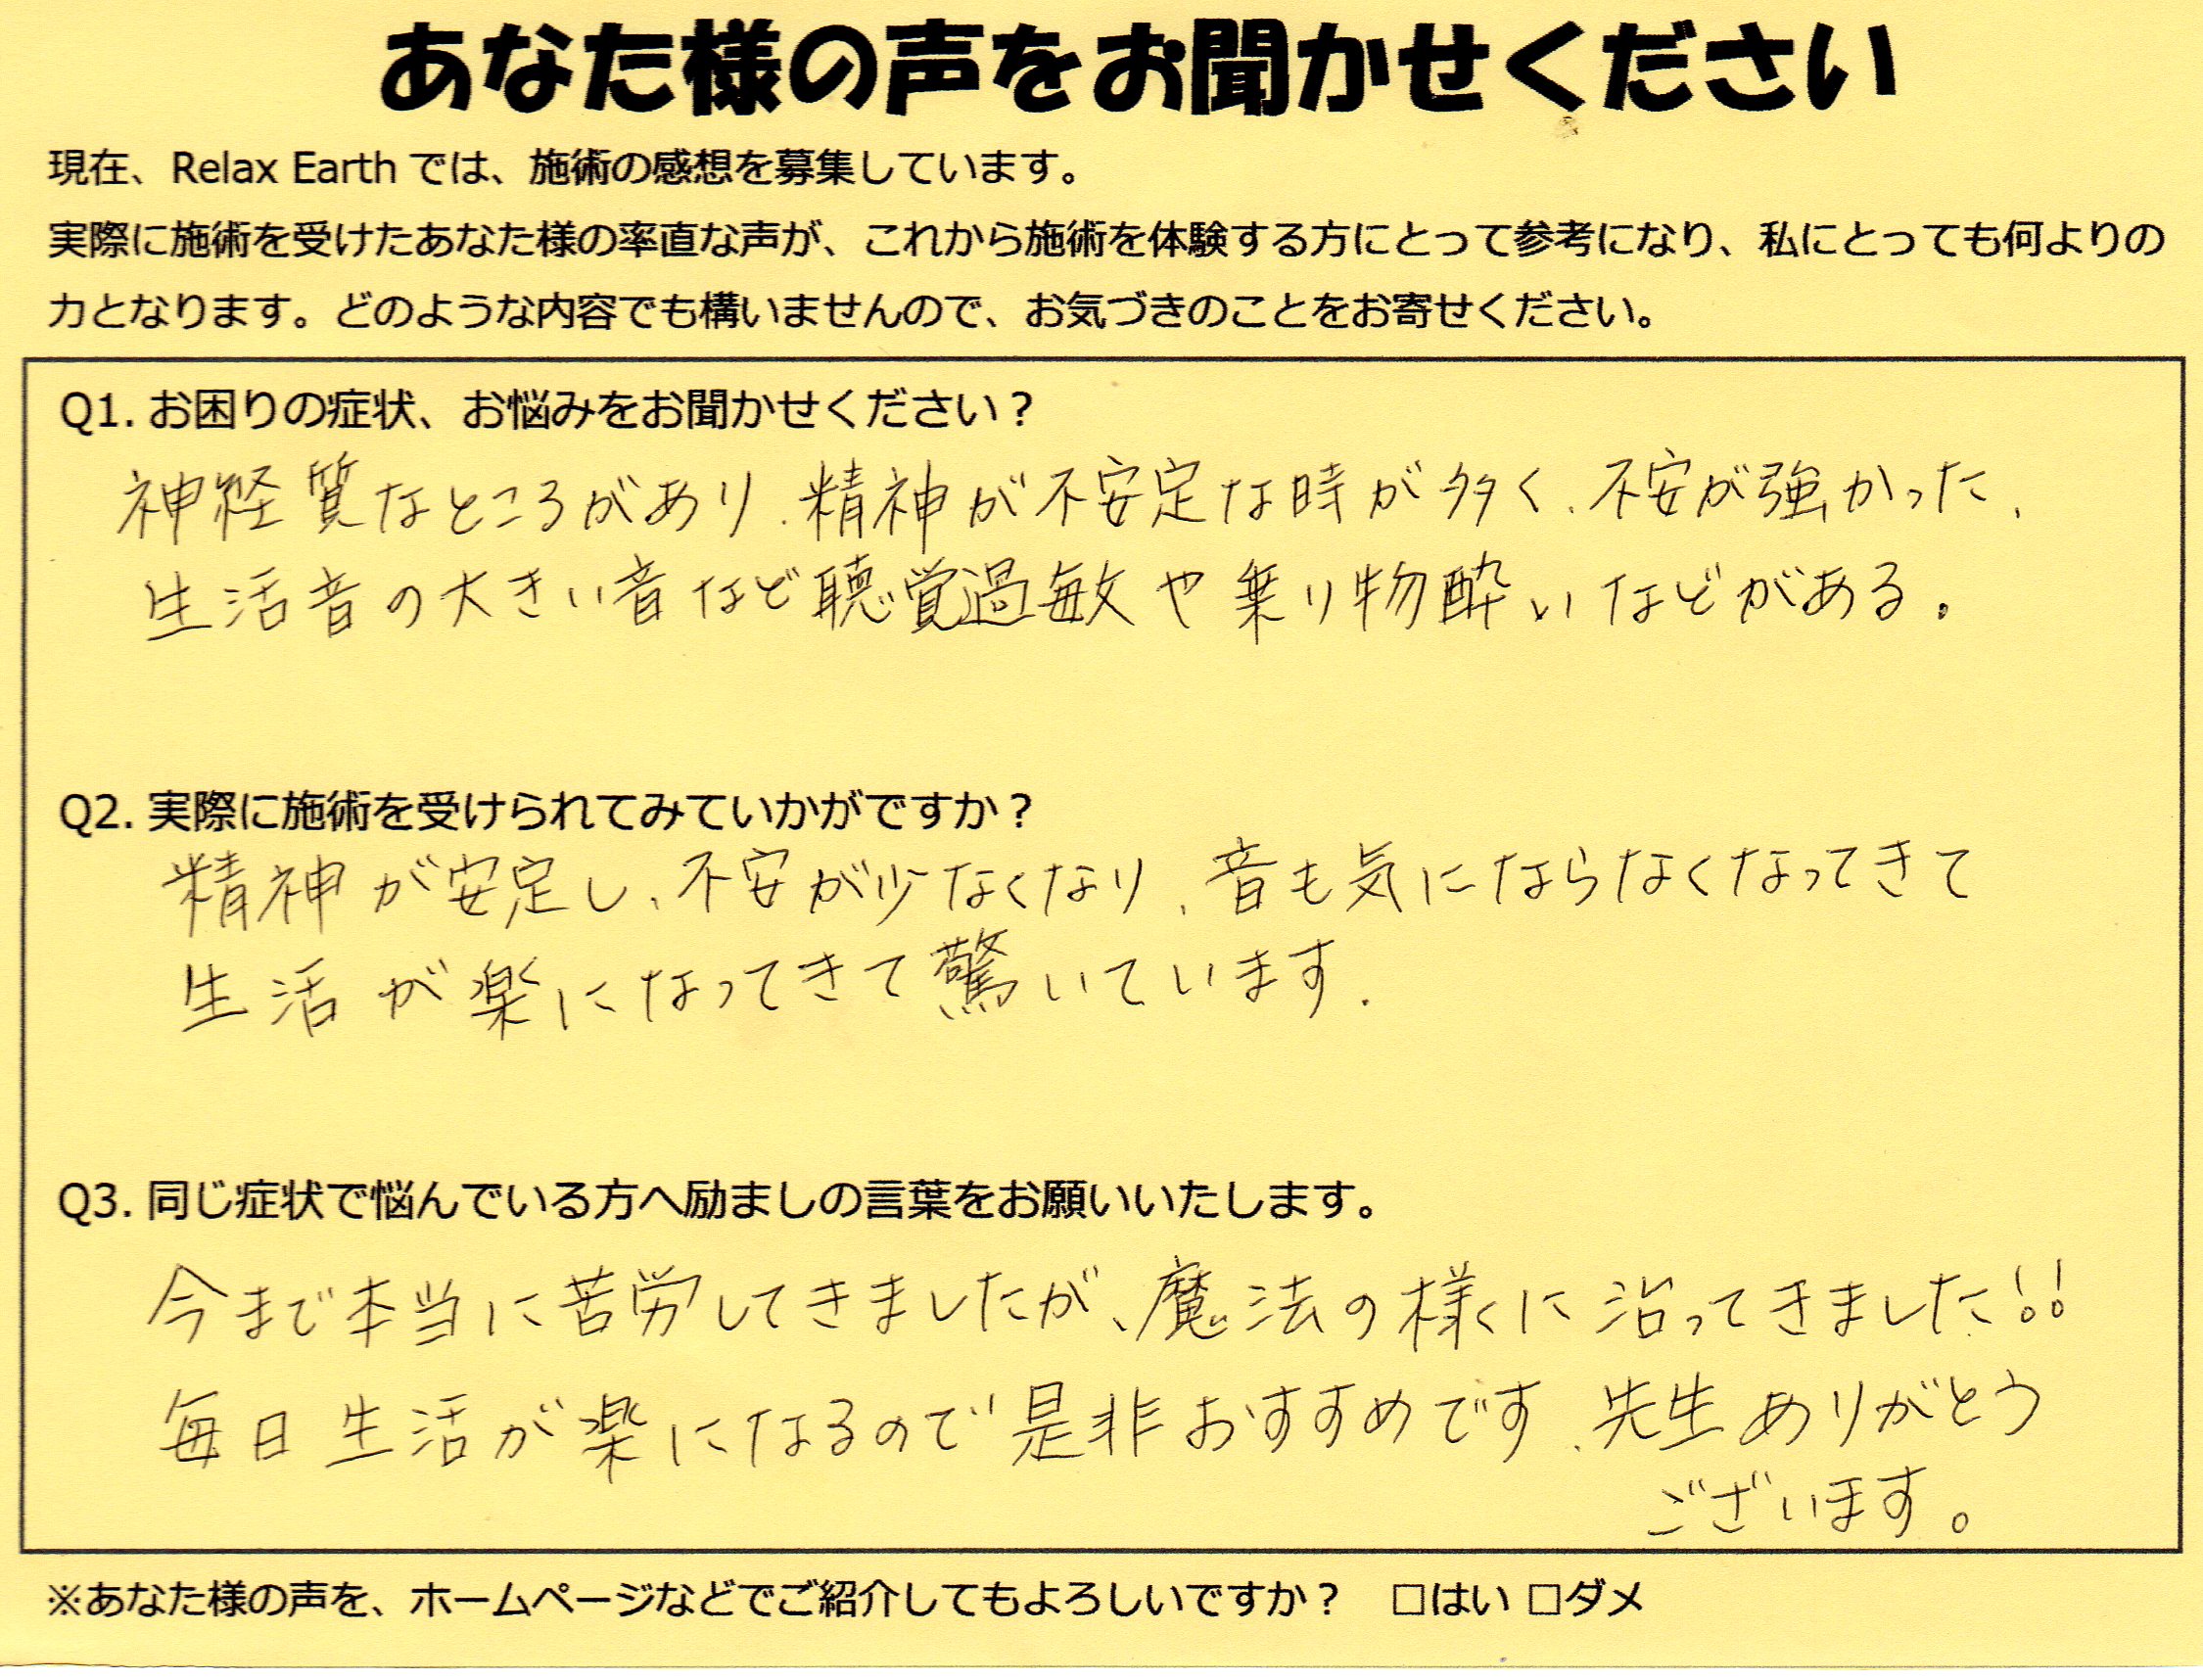 あなた様の声をお聞かせください
現在、Relax Earth では、施術の感想を募集しています。
実際に施術を受けたあなた様の率直な声が、これから施術を体験する方にとって参考になり、私にとっても何よりの
力となります。どのような内容でも構いませんので、お気づきのことをお寄せください。
Q1. お困りの症状、お悩みをお聞かせください？
神経質なところがあり、精神が不安定な時が多く、不安が強かった、
生活音の大きい音など聴覚過敏や乗り物酔いなどがある。
Q2. 実際に施術を受けられてみていかがですか？
精神が安定し、不安が少なくなり、音も気にならなくなってきて
生活が楽になってきて驚いています.
Q3. 同じ症状で悩んでいる方へ励ましの言葉をお願いいたします。
今まで本当に苦労してきましたが、魔法の様に治ってきました!!
毎日生活が楽になるので是非おすすめです、先生ありがとう
ございます。
※あなた様の声を、ホームページなどでご紹介してもよろしいですか？　□はい □ダメ